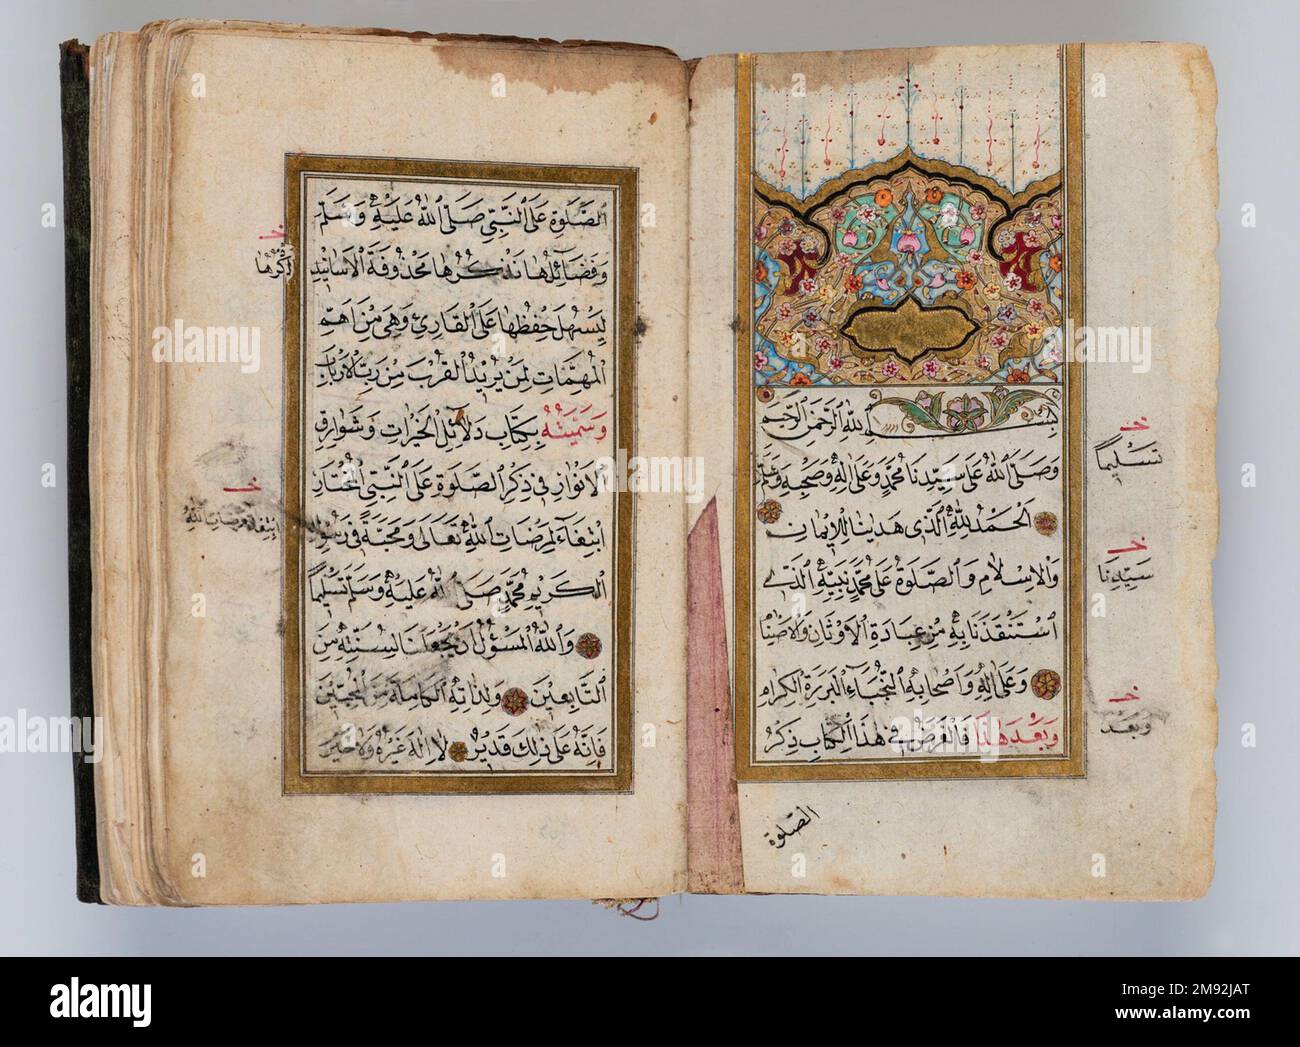 بسم الله الرحمن الرحيم
وصلى الله على سيدنا محمد وعلى اله وصحبه وسلم
الحمد لله الذى هدينا للايمان
والاسلام والصلوة على محمد نبيه الذى
استنقذنا به من عبادة الاوثان والاصنام
وعلى اله واصحابه النجباء البررة الكرام
وبعد هذا فالغرض فى هذا الكتاب ذكر
الصلوة
خـ
تسليما
خـ
سيدنا
خـ
وبعد
الصلوة على النبى صلى الله عليه وسلم
وفضائلها نذكرها محذوفة الاسانيد
ليسهل حفظها على القارئ وهى من اهم
المهمات لمن يريد القرب من رب الارباب
وسميته بكتاب دلائل الخيرات وشوارق
الانوار فى ذكر الصلوة على النبى المختار
ابتغاء لمرضات الله تعالى ومحبة فى رسوله
الكريم محمد صلى الله عليه وسلم تسليما
والله المسؤل ان يجعلنا لسنته من
التابعين ولذاته الكاملة من المحبين
فانه على ذلك قدير لا اله غيره ولا خير
خـ
ذكرها
خـ
alamy
Image ID: 2M92JAT
www.alamy.com